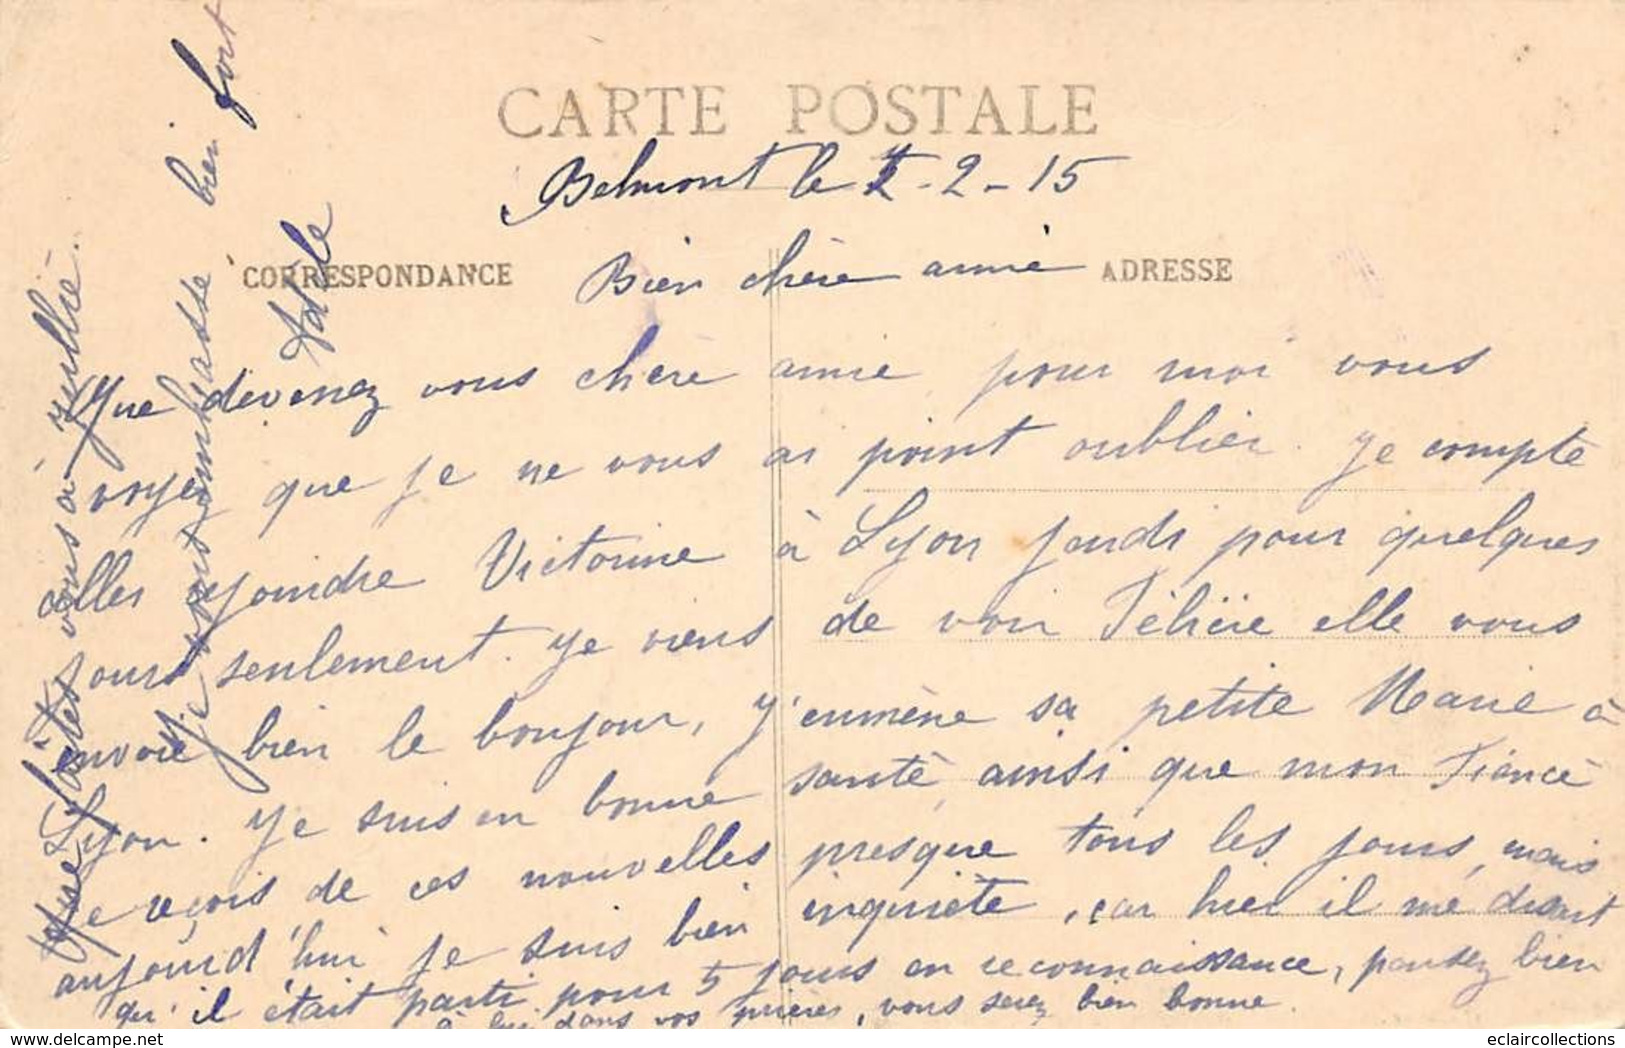 CARTE POSTALE
Belmont le 2-2-15
CORRESPONDANCE
ADRESSE
Bien chère amie
Que devenez vous chère amie pour moi vous
voyez que je ne vous ai point oublier. Je compte
aller rejoindre Victorine à Lyon jeudi pour quelques
jours seulement. Je viens de voir elle vous
envoie bien le bonjour, j'emmène sa petite Marie à
Lyon. Je suis en bonne santé, ainsi que mon Fiancé
je reçois de ces nouvelles presque tous les jours, mais
aujourd'hui je suis bien inquiète, car hier il me disait
qu'il était parti pour 5 jours en reconnaissance, pensez bien
à lui dans vos prières, vous serez bien bonne.
Que faites vous à
Je vous embrasse bien fort
Adèle
eclaircollections